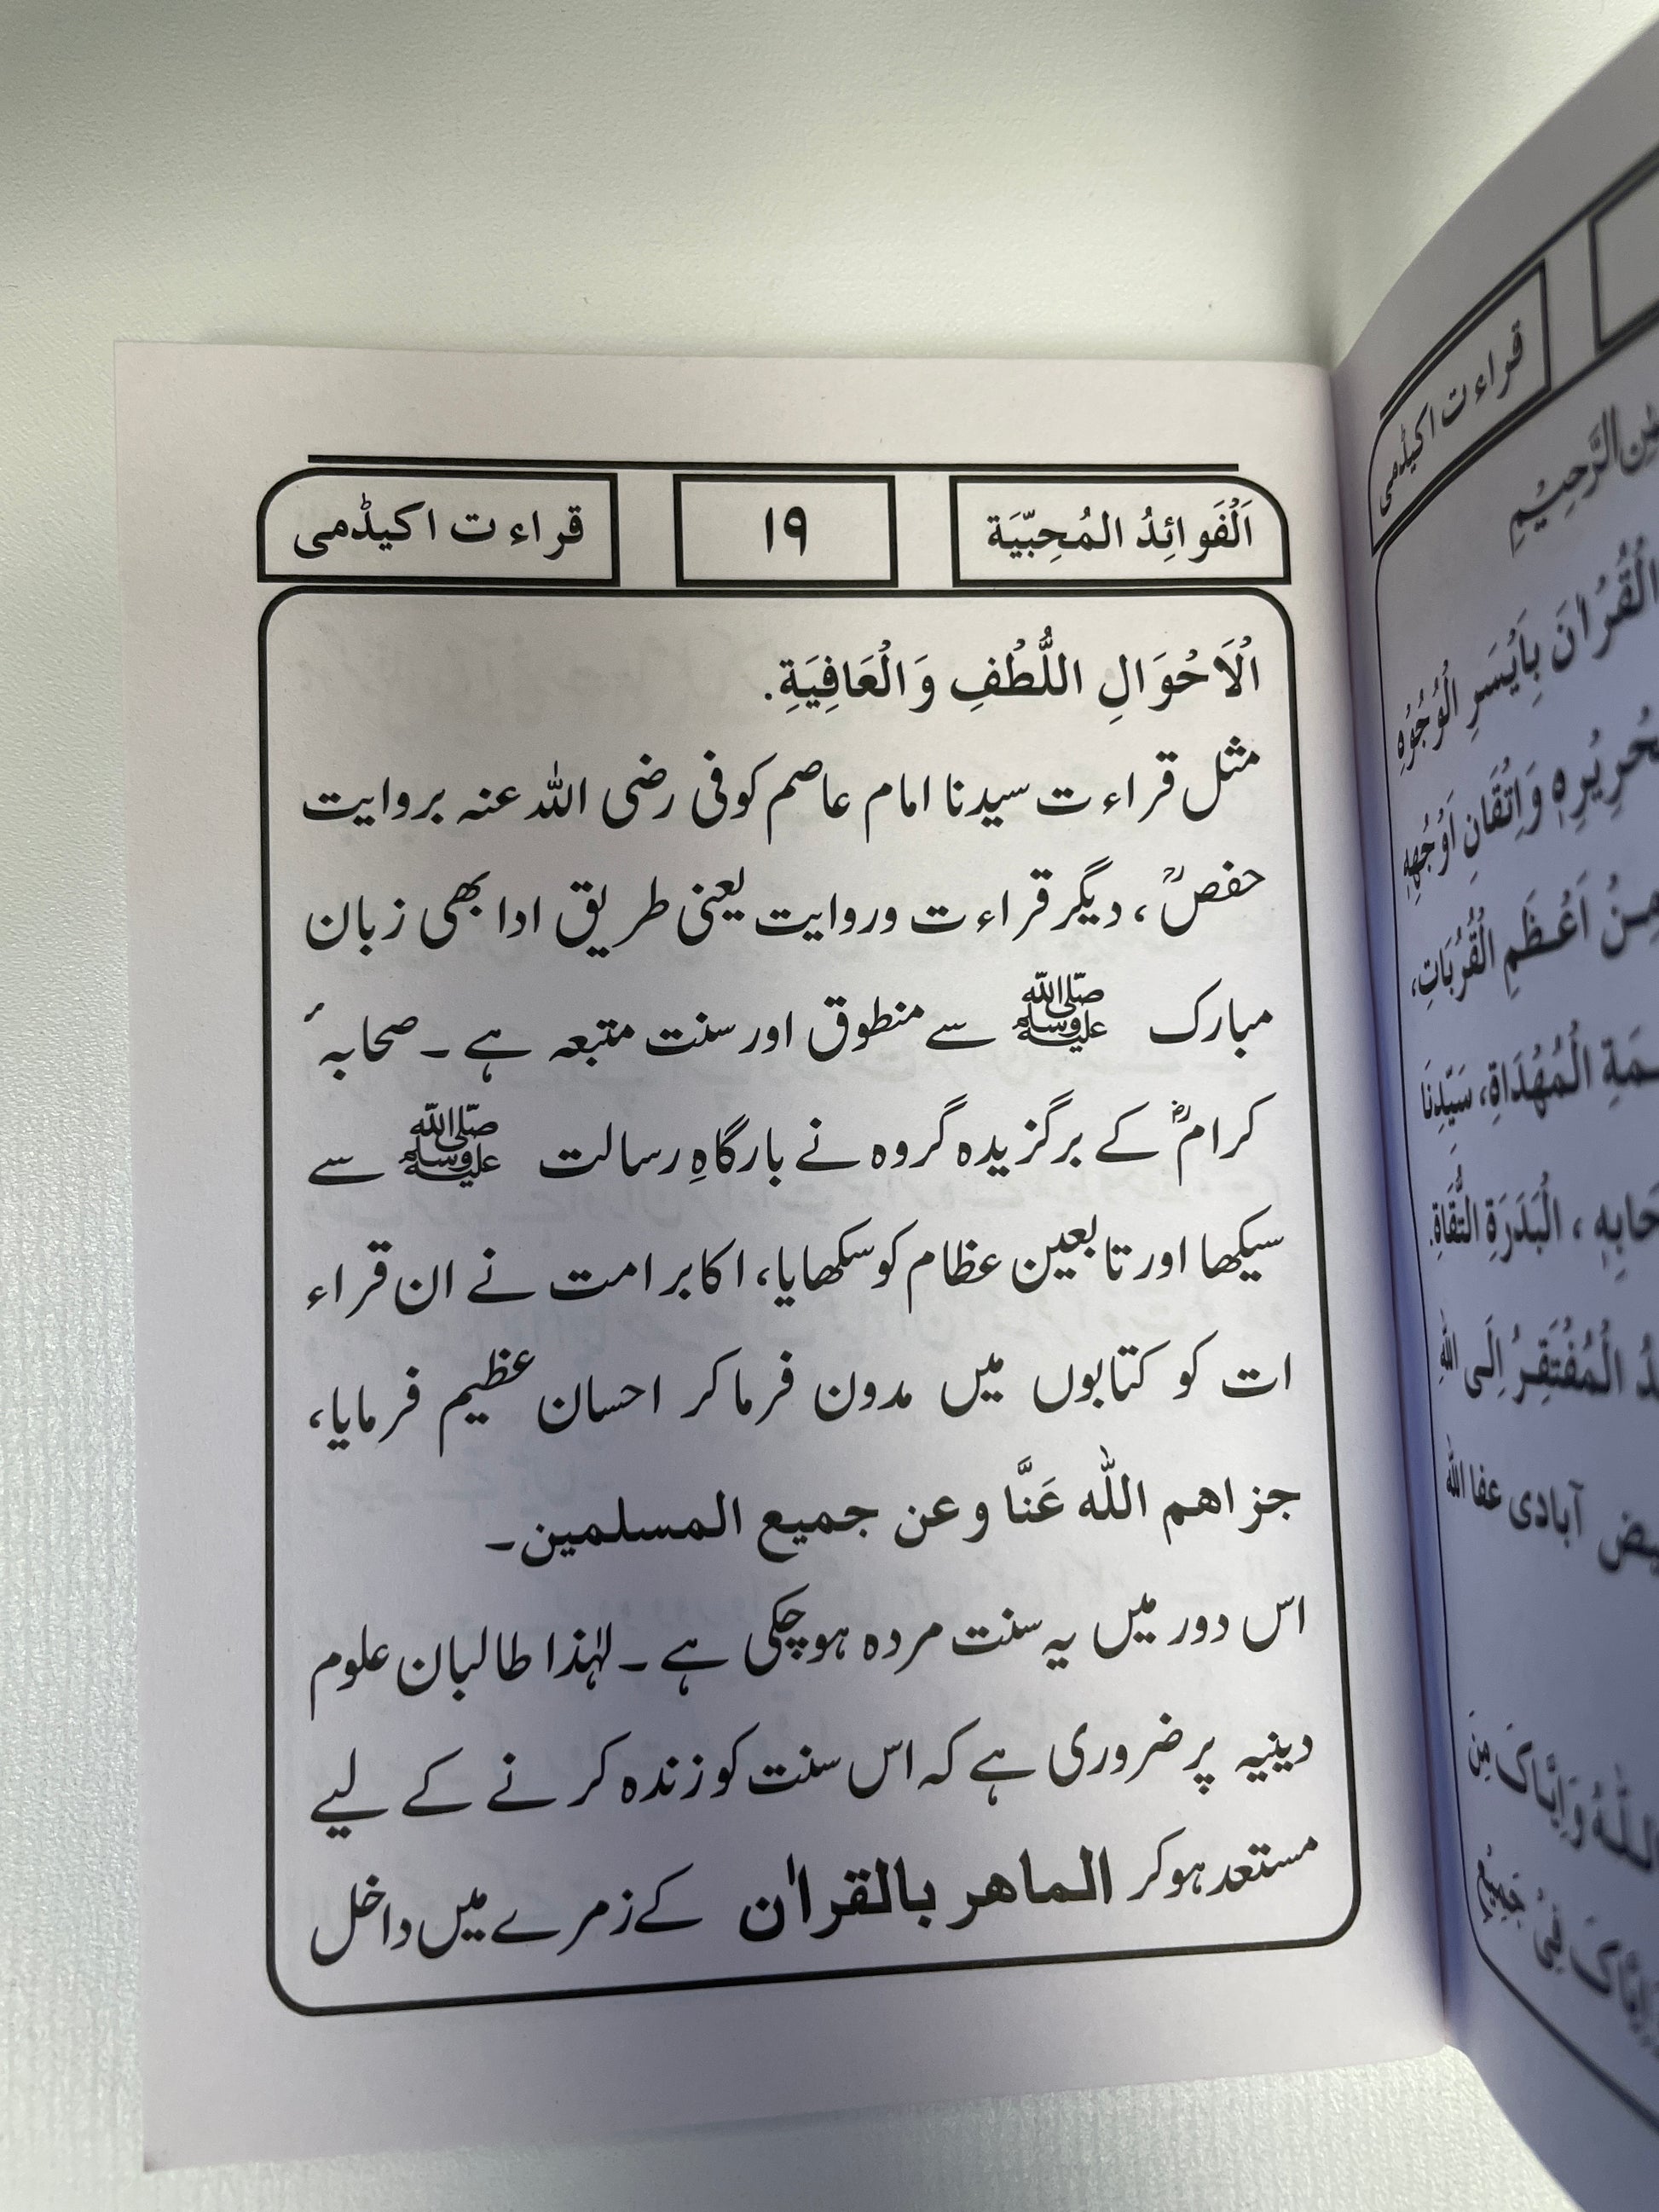 اَلْفَوائِدُ المُحِبّيَة
۱۹
قراءت اکیڈمی
اْلاَحْوَالِ اللُّطْفِ وَالْعَافِيَةِ.
مثل قراءت سیدنا امام عاصم کوفی رضی اللہ عنہ بروایت
حفصؒ، دیگر قراءت وروایت یعنی طریق ادا بھی زبان
مبارک ﷺ سے منطوق اور سنت متبعہ ہے۔ صحابہٴ
کرامؓ کے برگزیدہ گروہ نے بارگاہِ رسالت ﷺ سے
سیکھا اور تابعین عظام کو سکھایا، اکابر امت نے ان قراء
ات کو کتابوں میں مدون فرما کر احسان عظیم فرمایا،
جزاھم اللہ عَنَّا وعن جمیع المسلمین۔
اس دور میں یہ سنت مردہ ہو چکی ہے۔ لہٰذا طالبان علوم
دینیہ پر ضروری ہے کہ اس سنت کو زندہ کرنے کے لیے
مستعد ہو کر الماھر بالقراٰن کے زمرے میں داخل
قراءت اکیڈمی
الْقُرْاٰنَ بِاَيْسَرِ الْوُجُوْهِ
وَاِتْقَانِ اَوْجُهِهٖ
مِنْ اَعْظَمِ الْقُرُبَاتِ،
الْمُهْدَاةِ، سَيِّدِنَا
، الْبَدَرَةِ الثِّقَاةِ.
الْمُفْتَقِرُ اِلَى اللّٰهِ
آبادی عفا اللہ
وَاِيَّاكَ مِنَ
فِيْ جَمِيْعِ